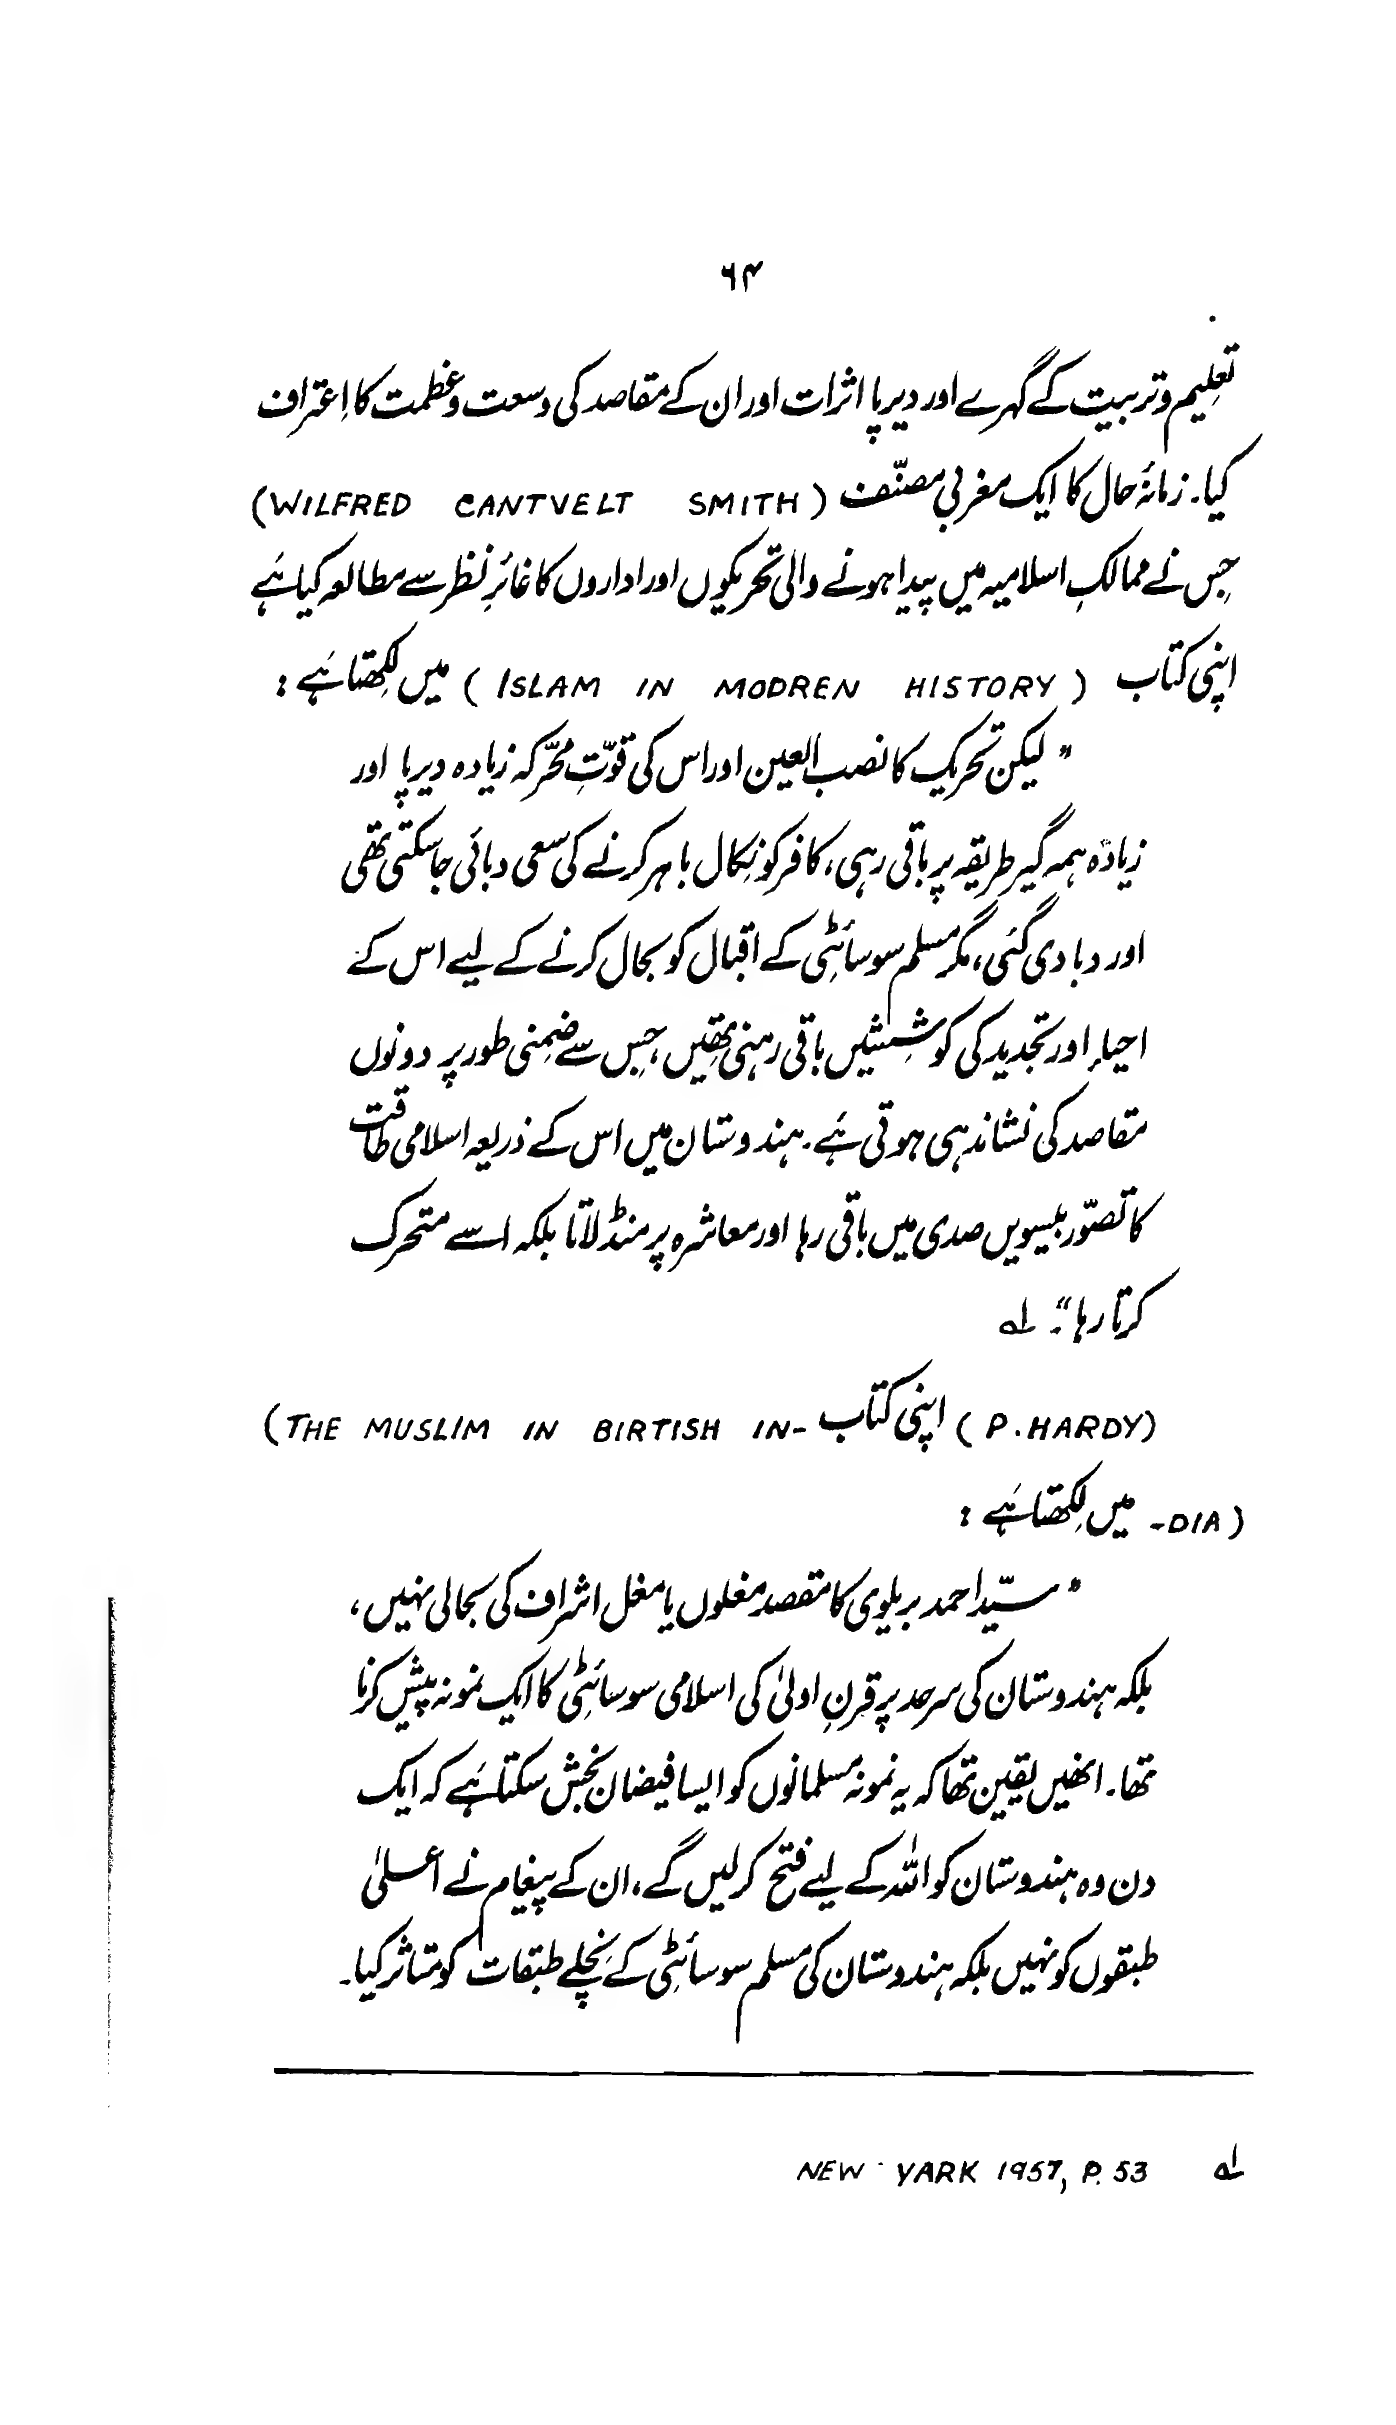 ۶۴
تعلیم و تربیت کے گہرے اور دیرپا اثرات اور ان کے مقاصد کی وسعت و عظمت کا اِعتراف
کیا۔ زمانۂ حال کا ایک مغربی مصنّف (WILFRED CANTVELT SMITH)
جِس نے ممالکِ اسلامیہ میں پیدا ہونے والی تحریکوں اور اداروں کا غائرِ نظر سے مطالعہ کیا ہَے
اپنی کتاب (ISLAM IN MODREN HISTORY) میں لِکھتا ہَے :
"لیکن تحریک کا نصب العین اور اس کی قوّتِ محرّکہ زیادہ دیرپا اور
زیادہ ہمہ گیر طریقہ پر باقی رہی، کافر کو نِکال باہر کرنے کی سعی دبائی جا سکتی تھی
اور دبا دی گئی، مگر مسلم سوسائٹی کے اقبال کو بحال کرنے کے لیے اس کے
احیاء اور تجدید کی کوشِشیں باقی رہنی تھیں، جِس سے ضِمنی طور پر دونوں
مقاصد کی نشاندہی ہوتی ہَے۔ ہندوستان میں اس کے ذریعہ اسلامی طاقت
کا تصوّر بیسویں صدی میں باقی رہا اور معاشرہ پر منڈلاتا بلکہ اسے متحرک
کرتا رہا"۔ لہ
(P.HARDY) اپنی کتاب (THE MUSLIM IN BIRTISH IN-
-DIA) میں لِکھتا ہَے :
"سیّد احمد بریلوی کا مقصد مغلوں یا مغل اشراف کی بحالی نہیں،
بلکہ ہندوستان کی سرحد پر قرنِ اولیٰ کی اسلامی سوسائٹی کا ایک نمونہ پیش کرنا
تھا۔ انھیں یقین تھا کہ یہ نمونہ مسلمانوں کو ایسا فیضان بخش سکتا ہَے کہ ایک
دن وہ ہندوستان کو اللہ کے لیے فتح کر لیں گے، ان کے پیغام نے اعلیٰ
طبقوں کو نہیں بلکہ ہندوستان کی مسلم سوسائٹی کے نِچلے طبقات کو متاثر کیا۔
لہ NEW YARK 1957, P. 53